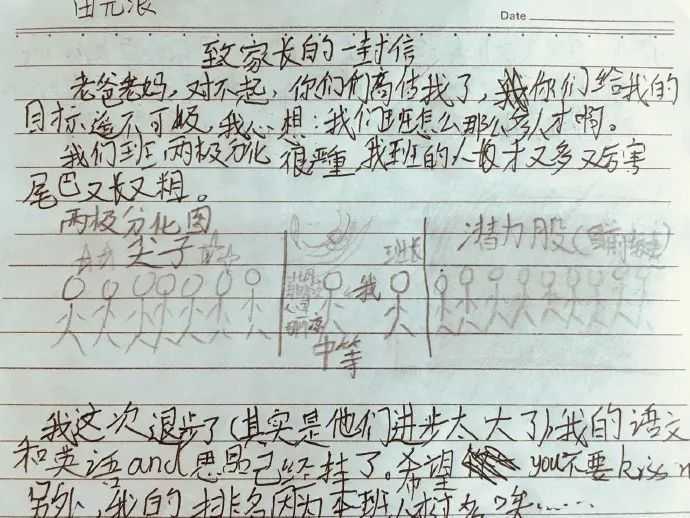 田元浪
Date
致家长的一封信
老爸老妈，对不起，你们们高估我了，你们给我的
目标遥不可极，我心想：我们班怎么那么多人才啊。
我们班两极分化很严重，我班的人才又多又厉害
尾巴又长又粗。
两极分化图
尖子 班长 潜力股（目前
我
中等
我这次退步了（其实是他们进步太大了）我的语文
和英语and思品已经挂了。希望 you不要kiss m
另外，我的排名因为本班人才